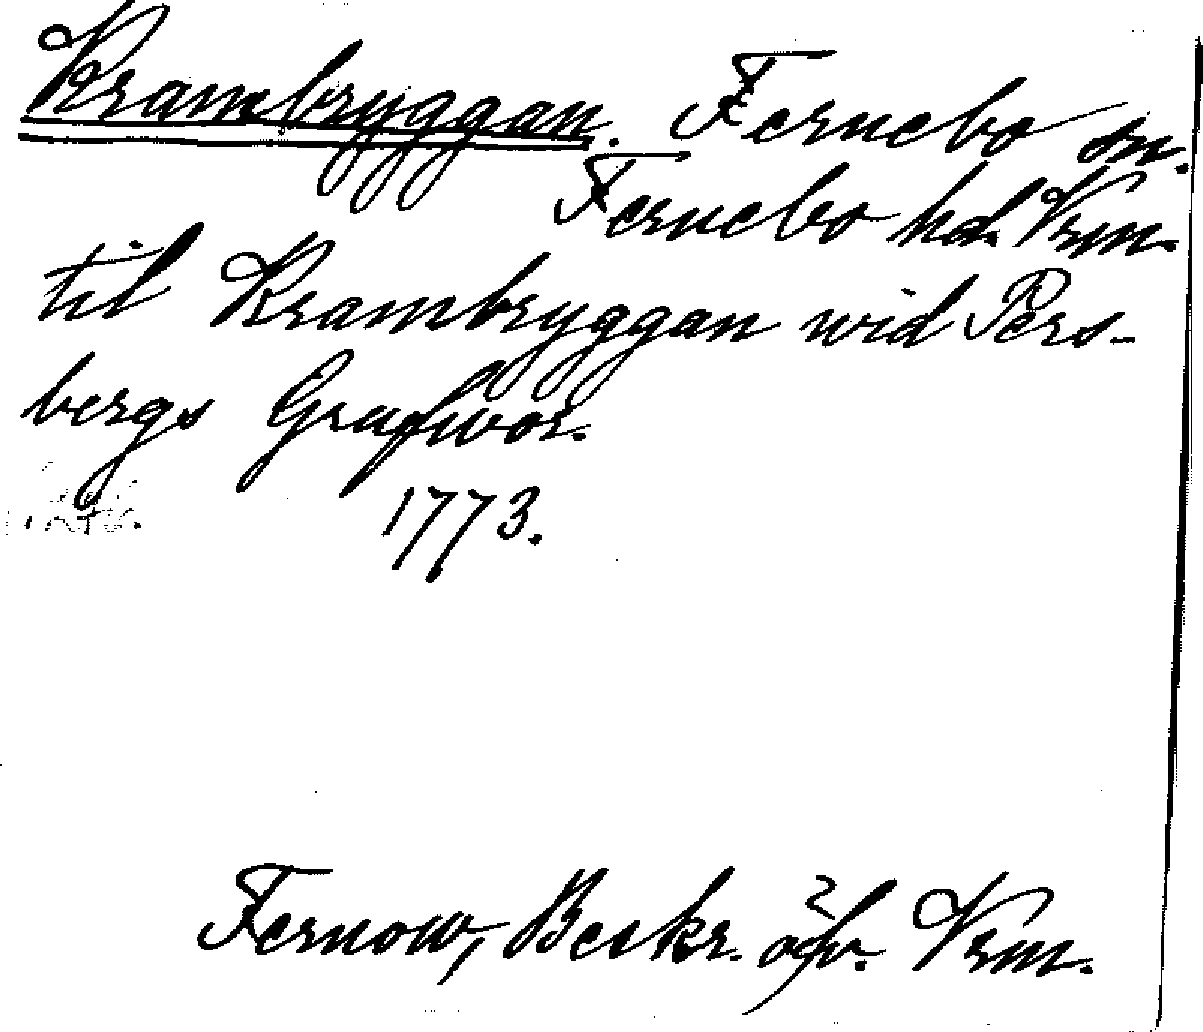 Krambryggan. Fernebo sn.
Fernebo hd. Vrm.
til Krambryggan wid Pers-
bergs Grufwor.
1773.
Fernow, Beskr. öfv. Vrm.